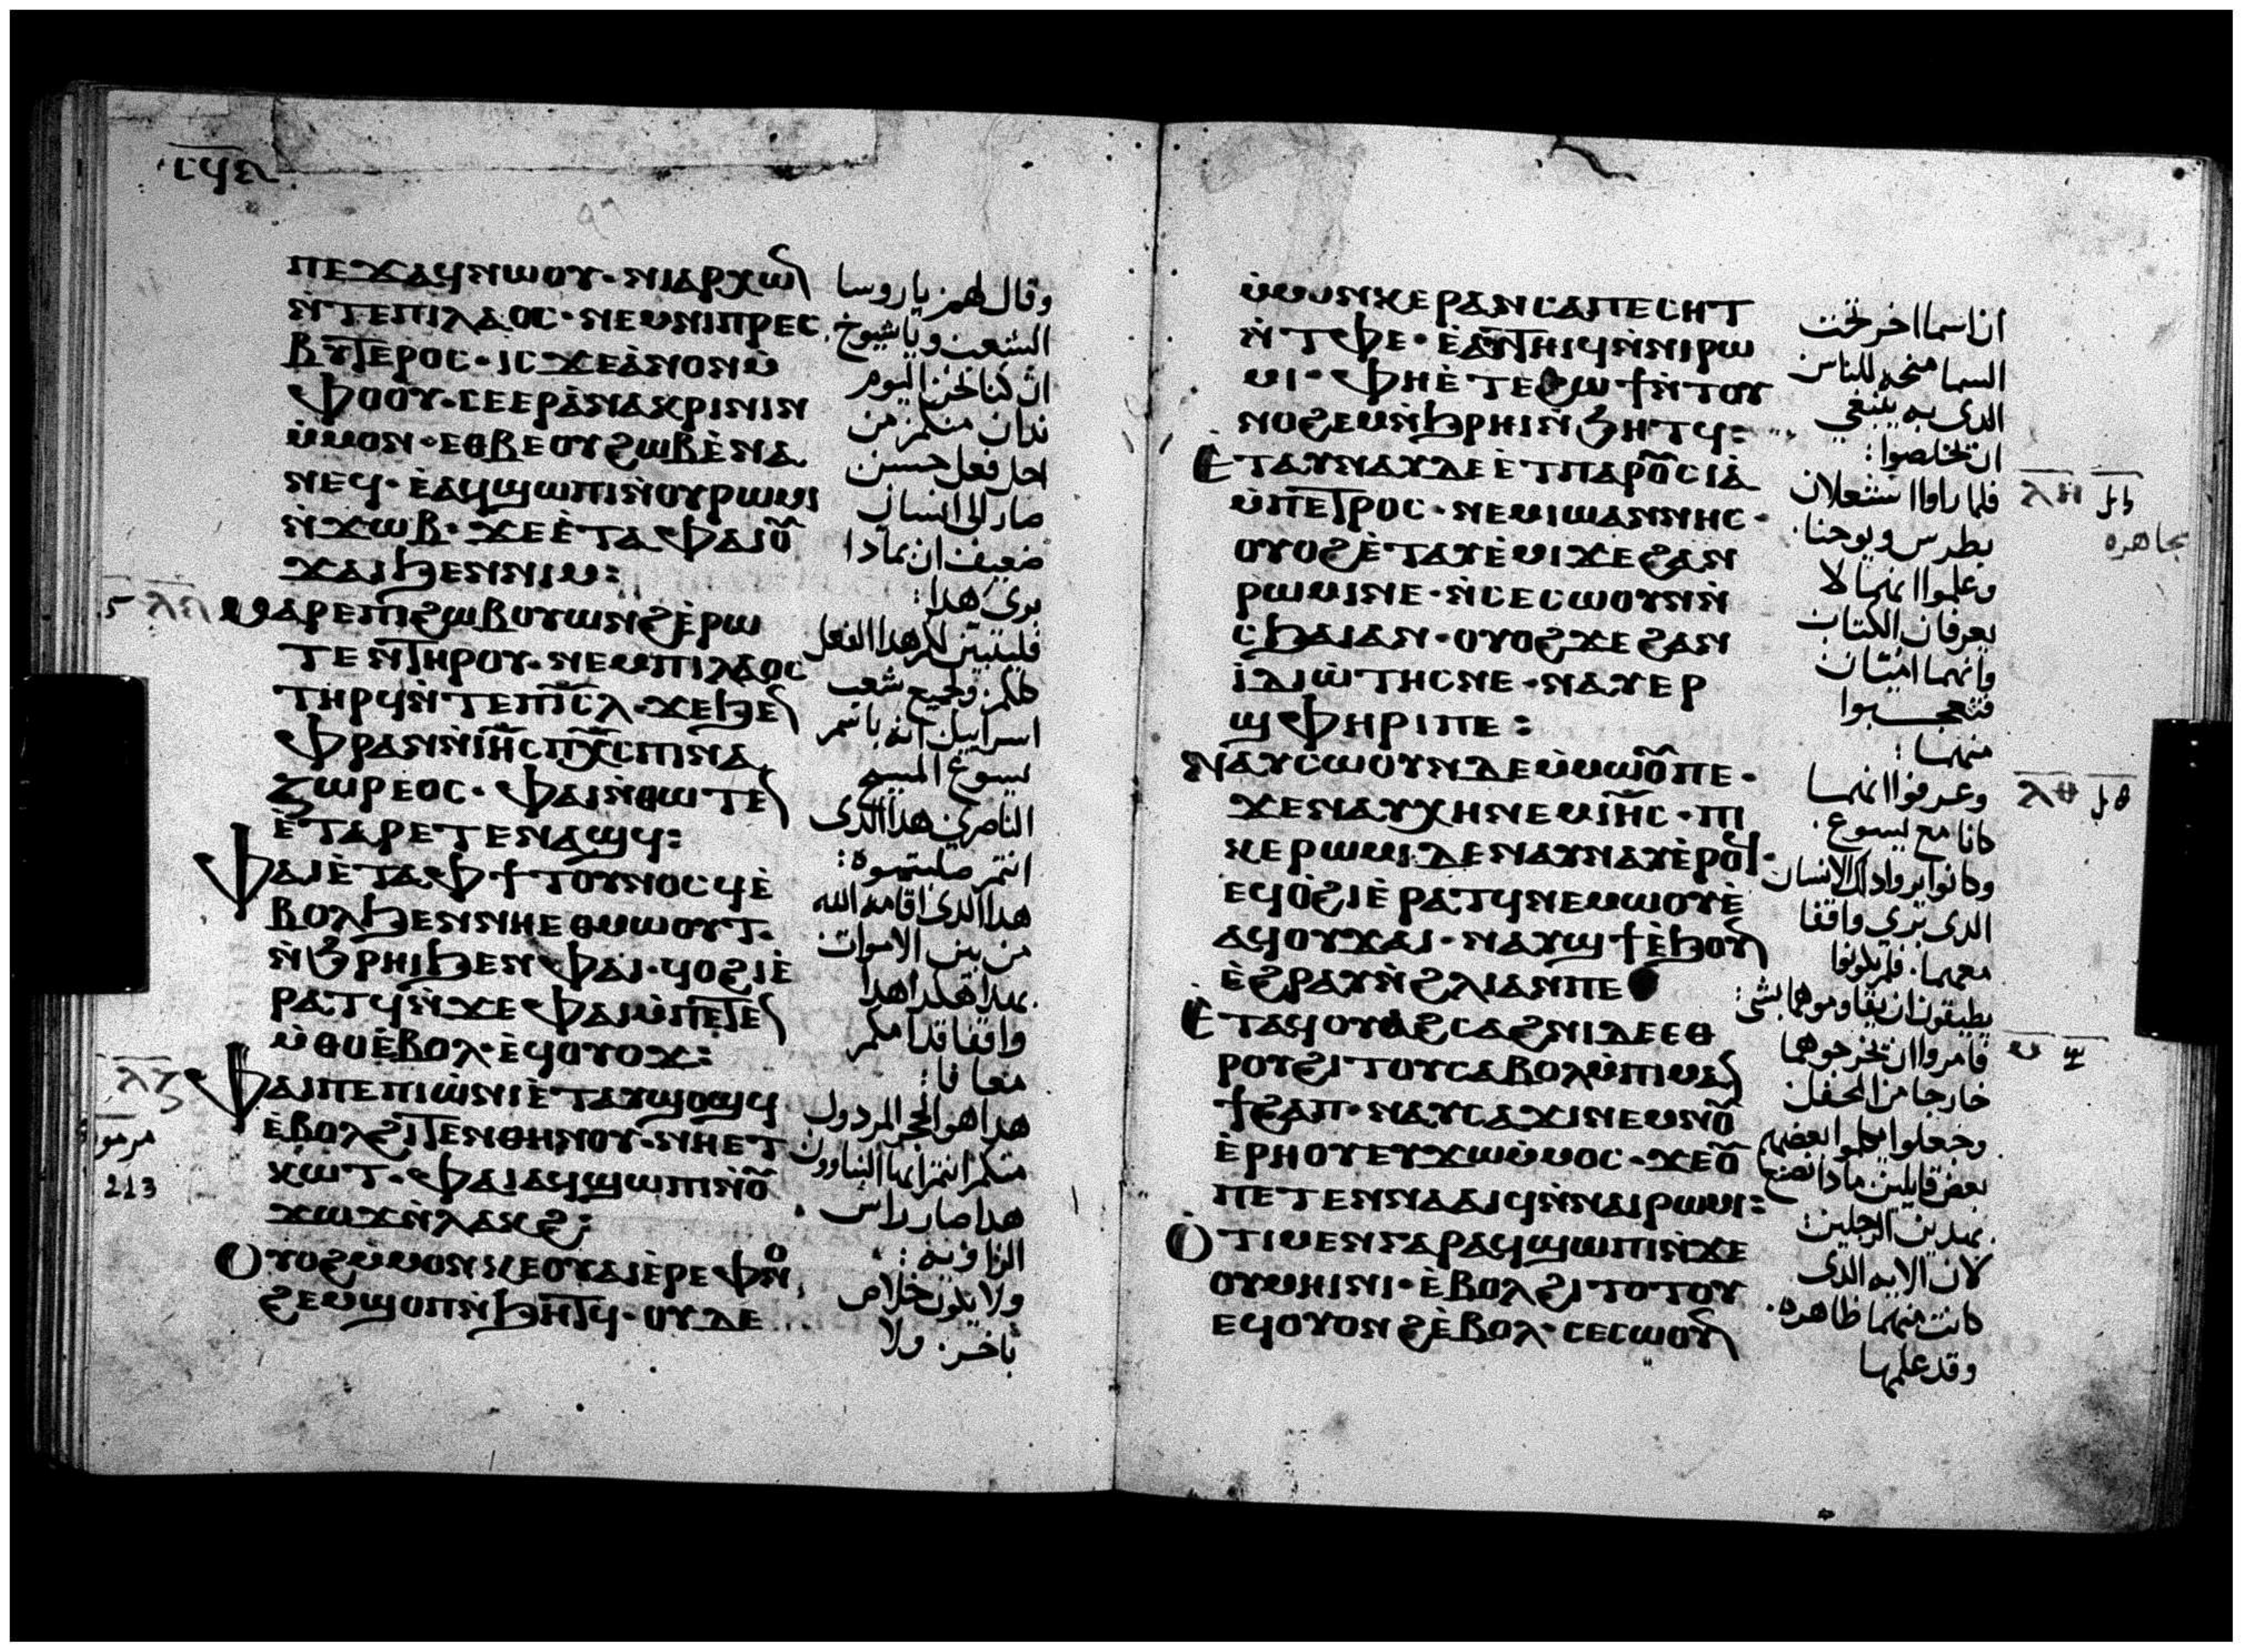 ⲡⲉϫⲁϥⲛⲱⲟⲩ · ⲛⲓⲁⲣⲭⲱⲛ
ⲛ̀ⲧⲉⲡⲓⲗⲁⲟⲥ · ⲛⲉⲙⲛⲓⲡⲣⲉⲥ
ⲃⲩⲧⲉⲣⲟⲥ · ⲓⲥϫⲉⲁ̀ⲛⲟⲛⲙ̀
ⲫⲟⲟⲩ · ⲥⲉⲉⲣⲁ̀ⲛⲁⲕⲣⲓⲛⲓⲛ
ⲙ̀ⲙⲟⲛ · ⲉⲑⲃⲉⲟⲩϩⲱⲃⲉ̀ⲛⲁ
ⲛⲉϥ · ⲉ̀ⲁϥϣⲱⲡⲓⲛ̀ⲟⲩⲣⲱⲙⲓ
ⲛ̀ϫⲱⲃ · ϫⲉⲉ̀ⲧⲁⲫⲁⲓⲟ̅
ϫⲁⲓϧⲉⲛⲛⲓⲙ :
ⲙⲁⲣⲉⲡⲓϩⲱⲃⲟⲩⲱⲛϩⲉ̀ⲣⲱ
ⲧⲉⲛⲧⲏⲣⲟⲩ · ⲛⲉⲙⲡⲓⲗⲁⲟⲥ
ⲧⲏⲣϥⲛ̀ⲧⲉⲡⲓⲥ̅ⲗ · ϫⲉϧⲉⲛ
ⲫⲣⲁⲛⲛ̀ⲓⲏ̅ⲥⲡⲭ̅ⲥⲡⲓⲛⲁ
ⲍⲱⲣⲉⲟⲥ · ⲫⲁⲓⲛ̀ⲑⲱⲧⲉⲛ
ⲉ̀ⲧⲁⲣⲉⲧⲉⲛⲁϣϥ :
ⲫⲁⲓⲉ̀ⲧⲁⲫϯⲧⲟⲩⲛⲟⲥϥⲉ̀
ⲃⲟⲗϧⲉⲛⲛⲏⲉⲑⲙⲱⲟⲩⲧ ·
ⲛ̀ϩ̀ⲣⲏⲓϧⲉⲛⲫⲁⲓ · ϥⲟϩⲓⲉ̀
ⲣⲁⲧϥⲛ̀ϫⲉⲫⲁⲓⲙ̀ⲡⲉⲧⲉⲛ
ⲙ̀ⲑⲟⲉ̀ⲃⲟⲗ · ⲉ̀ϥⲟⲩⲟϫ :
ⲫⲁⲓⲡⲉⲡⲓⲱ̀ⲛⲓⲉ̀ⲧⲁⲩϣⲟϣϥ
ⲉ̀ⲃⲟⲗϩⲓⲧⲉⲛⲑⲏⲛⲟⲩ · ⲛⲏⲉⲧ
ⲕⲱ̀ⲧ · ⲫⲁⲓⲁϥϣⲱⲡⲓⲛ̀ⲟ̅
ϫⲱϫⲛ̀ⲗⲁⲕϩ :
ⲟⲩⲟϩⲙ̀ⲙⲟⲛⲕⲉⲟⲩⲁⲓⲉ̀ⲣⲉⲫⲛⲟ
ϩⲉⲙϣⲟⲡⲛ̀ϧⲏⲧϥ · ⲟⲩⲇⲉ
وقال لهم يا روسا
الشعب ويا شيوخ
ان كنا نحن اليوم
ندان منكم من
اجل فعل حسن
صار الى انسان
ضعيف ان بماذا
برى هذا :
فليتبين لكم هذا الفعل
كلكم ولجميع شعب
اسراييل انه باسم
يسوع المسيح
الناصري هذا الذى
انتم صلبتموه :
هذا الذى اقامه الله
من بين الاموات
بهذا هكذا هذا
واقفا قدامكم
معافا :
هذا هو الحجر المردول
منكم انتم ايها البناوون
هذا صار راس
الزاويه :
ولا يكون خلاص
باخر ولا
ⲗⲍ
مرمور
213
ⲙ̀ⲙⲟⲛⲕⲉⲣⲁⲛⲥⲁⲡⲉⲥⲏⲧ
ⲛ̀ⲧⲫⲉ · ⲉ̀ⲁⲩⲧⲏⲓϥⲛ̀ⲛⲓⲣⲱ
ⲙⲓ · ⲫⲏⲉ̀ⲧⲉⲥϣⲉϯⲛ̀ⲧⲟⲩ
ⲛⲟϩⲉⲙⲛ̀ϧⲣⲏⲓⲛ̀ϧⲏⲧϥ :
ⲉⲧⲁⲩⲛⲁⲩⲇⲉⲉ̀ⲧⲡⲁⲣⲟ̅ⲥⲓⲁ̀
ⲙ̀ⲡⲉⲧⲣⲟⲥ · ⲛⲉⲙⲓⲱⲁⲛⲛⲏⲥ ·
ⲟⲩⲟϩⲉ̀ⲧⲁⲩⲉ̀ⲙⲓϫⲉϩⲁⲛ
ⲣⲱⲙⲓⲛⲉ · ⲛ̀ⲥⲉⲥⲱⲟⲩⲛⲛ̀
ⲥϧⲁⲓⲁⲛ · ⲟⲩⲟϩϫⲉϩⲁⲛ
ⲓ̀ⲇⲓⲱ̀ⲧⲏⲥⲛⲉ · ⲛⲁⲩⲉⲣ
ϣⲫⲏⲣⲓⲡⲉ :
ⲛⲁⲩⲥⲱⲟⲩⲛⲇⲉⲙ̀ⲙⲱⲟ̅ⲡⲉ ·
ϫⲉⲛⲁⲩⲭⲏⲛⲉⲙⲓⲏ̅ⲥ · ⲡⲓ
ⲕⲉⲣⲱⲙⲓⲇⲉⲛⲁⲩⲛⲁⲩⲉ̀ⲣⲟϥ ·
ⲉϥⲟ̀ϩⲓⲉ̀ⲣⲁⲧϥⲛⲉⲙⲱⲟⲩⲉ̀
ⲁϥⲟⲩϫⲁⲓ · ⲛⲁⲩϣϯⲉ̀ϧⲟⲩⲛ
ⲉ̀ϩⲣⲁⲩⲛ̀ϩⲗⲓⲁⲛⲡⲉ
ⲉⲧⲁϥⲟⲩⲁϩⲥⲁϩⲛⲓⲇⲉⲉⲑ
ⲣⲟⲩϩⲓⲧⲟⲩⲥⲁⲃⲟⲗⲙ̀ⲡⲓⲙⲁⲛ
ϯϩⲁⲡ · ⲛⲁⲩⲥⲁϫⲓⲛⲉⲙⲛⲟ̅
ⲉ̀ⲣⲏⲟⲩⲉⲩϫⲱⲙ̀ⲙⲟⲥ · ϫⲉⲟ̅
ⲡⲉⲧⲉⲛⲛⲁⲁⲓϥⲛ̀ⲛⲁⲓⲣⲱⲙⲓ :
ⲟⲧⲓⲙⲉⲛⲅⲁⲣⲁϥϣⲱⲡⲓⲛ̀ϫⲉ
ⲟⲩⲙⲏⲓⲛⲓ · ⲉ̀ⲃⲟⲗϩⲓⲧⲟⲧⲟⲩ
ⲉϥⲟⲩⲟⲛϩⲉ̀ⲃⲟⲗ · ⲥⲉⲥⲱⲟⲩⲛ
ان اسما اخر تحت
السما منحه للناس
الذى به ينبغي
ان تخلصوا :
فلما راوا استعلان
بطرس ويوحنا ·
وعلموا انهما لا
يعرفان الكتاب
وانهما اميان
فتعجبوا
منهما :
وعرفوا انهما
كانا مع يسوع ·
وكانوا يروا ذلك الانسان
الذى بري واقفا
معهما · فلم يكونوا
يطيقون ان يقاوموهما بشى :
فامروا ان تخرجوهما
خارجا من المحفل
وجعلوا يكلموا بعضهم
بعض قايلين ماذا نصنع
بهذين الرجلين :
لان الايه الذى
كانت منهما ظاهره ·
وقد علمها
ⲗⲏ
بجاهره
ⲗⲑ
ⲙ